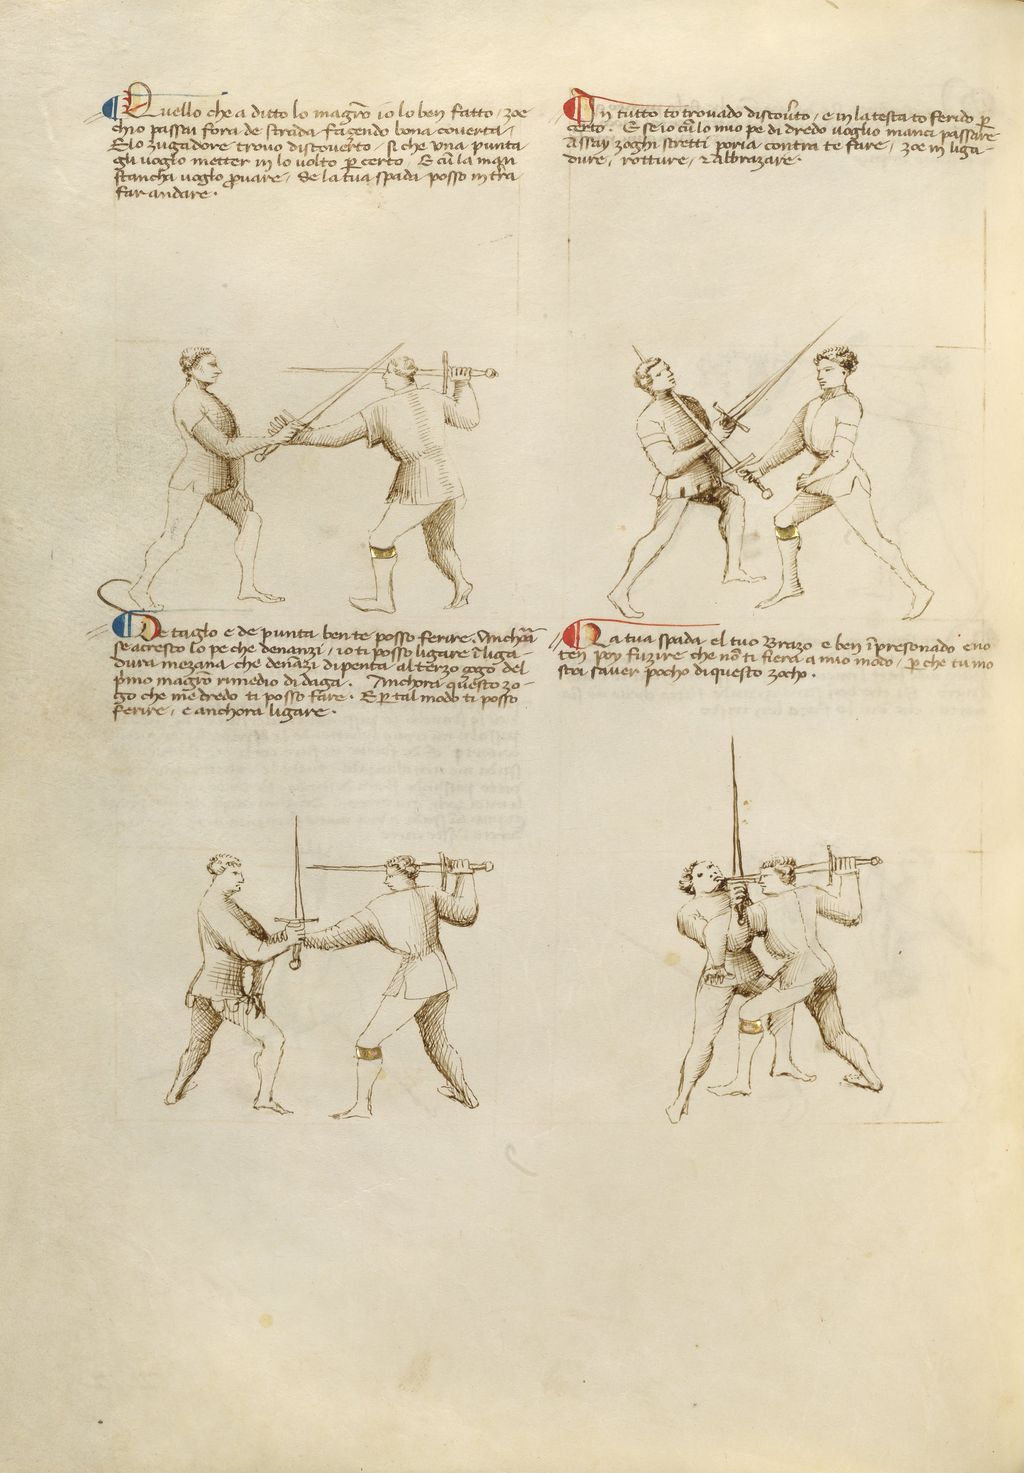 Quello che a ditto lo magro io lo ben fatto, zoe
chio passai fora de strada fazendo bona coverta,
E lo zugadore trovo discoverto, si che una punta
gli voglo metter in lo volto per certo. E cum la man
stancha voglo provare, se la tua spada posso in terra
far andare.
In tutto to trovado discoverto, e in la testa to ferido per
certo. E se io cum lo mio pe di dredo voglio inanci passare
Assay zoghi stretti poria contra te fare, zoe in liga-
dure, rotture, & abrazare.
De taglo e de punta ben te posso ferire. Anchora
se acresco lo pe che denanzi, io ti posso ligare in liga-
dura mezana che denanzi dipenta al terzo zogo del
primo magro rimedio di daga. Anchora questo zo-
go che me dredo ti posso fare. E per tal modo ti posso
ferire, e anchora ligare.
La tua spada el tuo Brazo e ben impresonado e no
ten poy fuzire che non ti fiera a mio modo, per che tu mo
stri saver pocho di questo zocho.